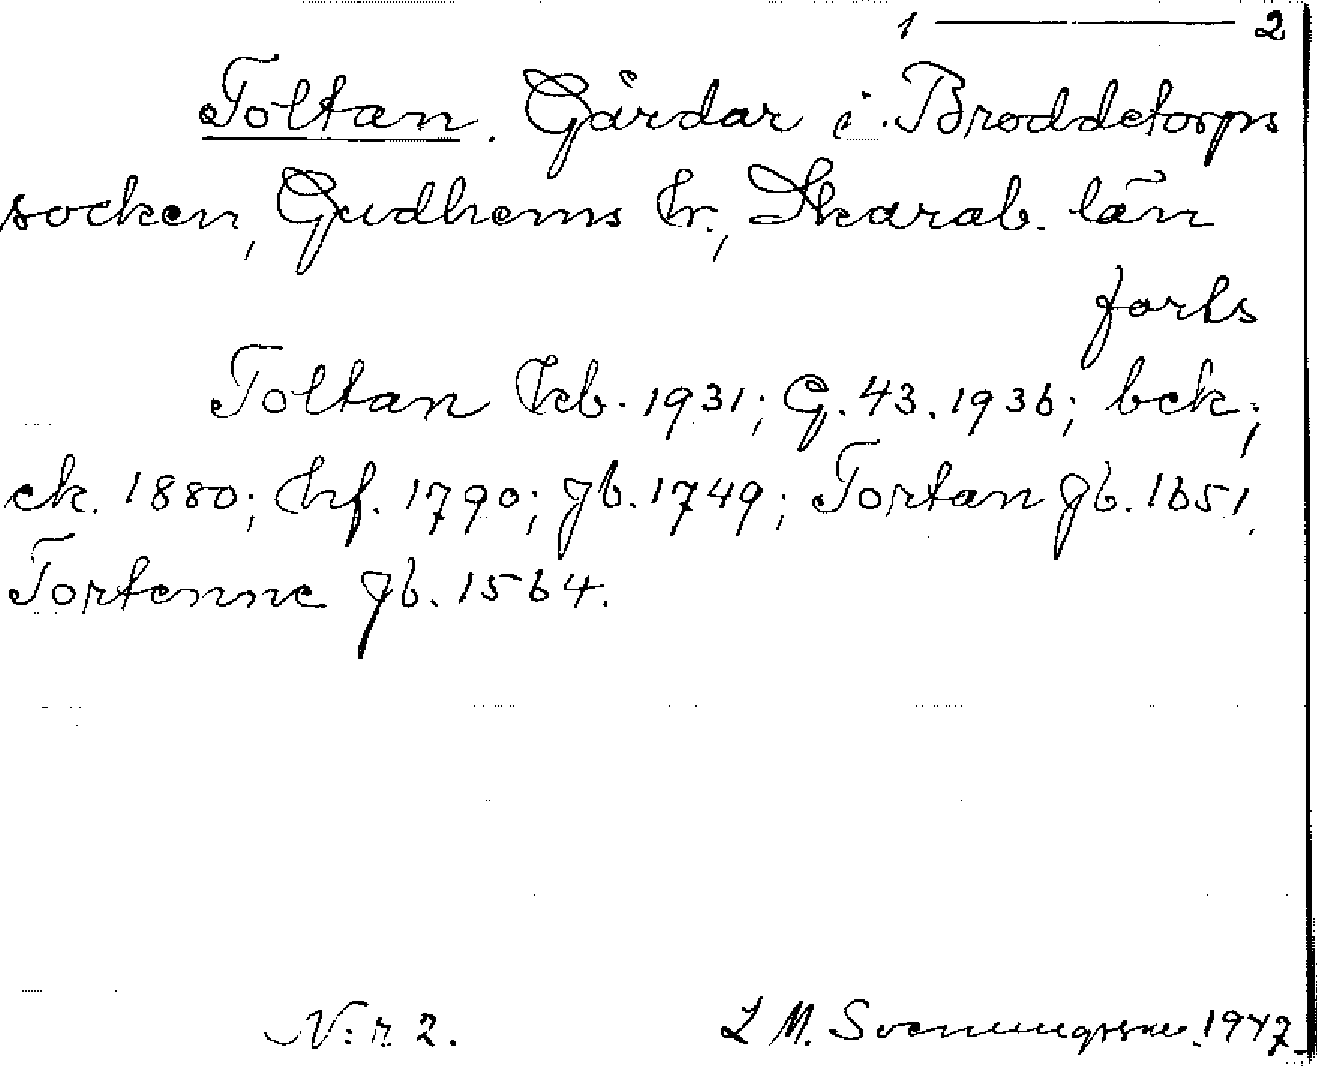 1 ——— 2
Toltan. Gårdar i Broddetorps
socken, Gudhems hr., Skarab. län
forts
Toltan kb. 1931; G. 43. 1936; bek;
ek. 1880; hf. 1790; jb. 1749; Tortan jb. 1651.
Tortenne jb. 1564.
N:r 2. L M. Svenungsson. 1947